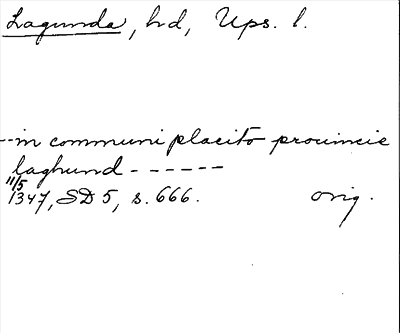 Lagunda, hd, Ups. l.
--in communi placito prouincie
laghund - - - - - -
11/5
1347, SD 5, s. 666. orig.